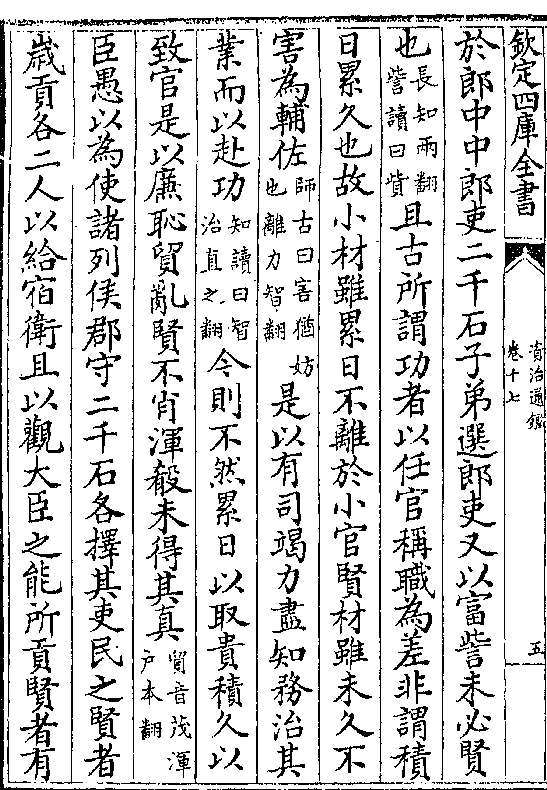 欽定四庫全書
資治通鑑
卷十七
五
於郎中中郎吏二千石子弟選郎吏又以富訾未必賢
也長知兩翻
訾讀曰貲且古所謂功者以任官稱職為差非謂積
日累久也故小材雖累日不離於小官賢材雖未久不
害為輔佐師古曰害猶妨
也離力智翻是以有司竭力盡知務治其
業而以赴功知讀曰智
治直之翻今則不然累日以取貴積久以
致官是以廉恥貿亂賢不肖渾殽未得其真貿音茂渾
戶本翻
臣愚以為使諸列侯郡守二千石各擇其吏民之賢者
歲貢各二人以給宿衛且以觀大臣之能所貢賢者有